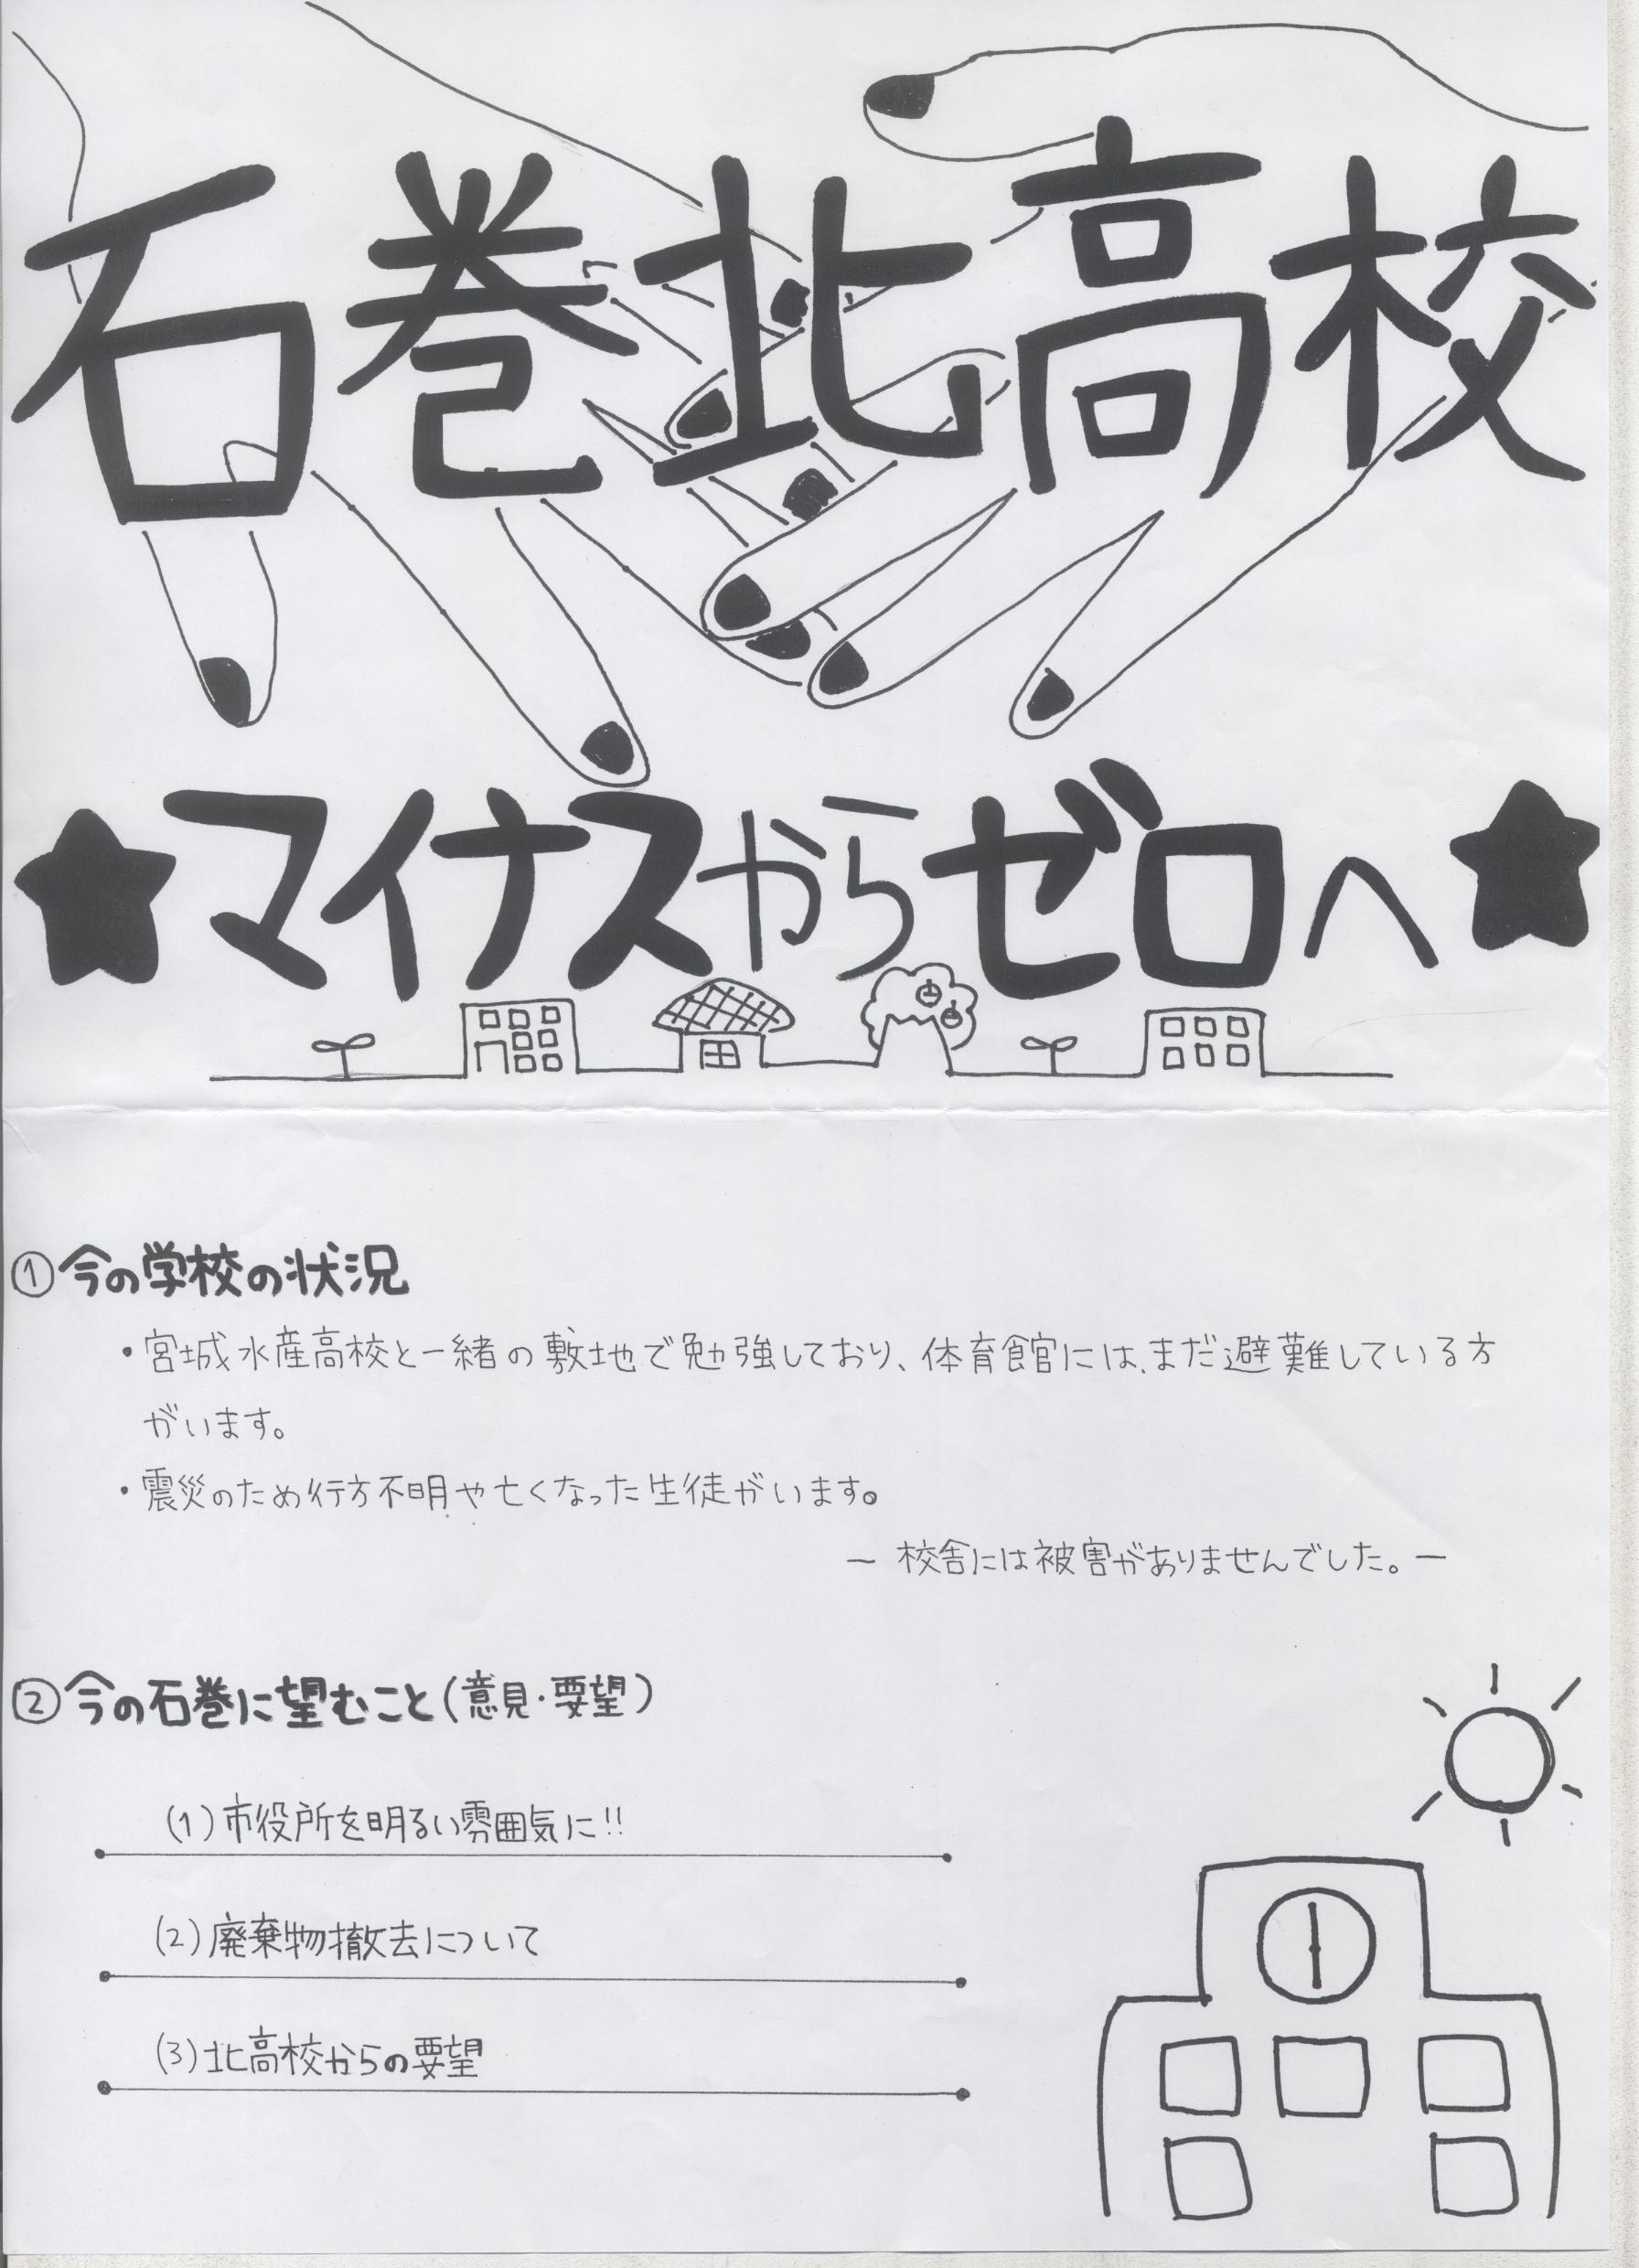 石巻北高校
★マイナスからゼロへ★
①今の学校の状況
・宮城水産高校と一緒の敷地で勉強しており、体育館には、まだ避難している方
がいます。
・震災のため行方不明や亡くなった生徒がいます。
― 校舎には被害がありませんでした。―
②今の石巻に望むこと(意見・要望)
(1)市役所を明るい雰囲気に!!
(2)廃棄物撤去について
(3)北高校からの要望